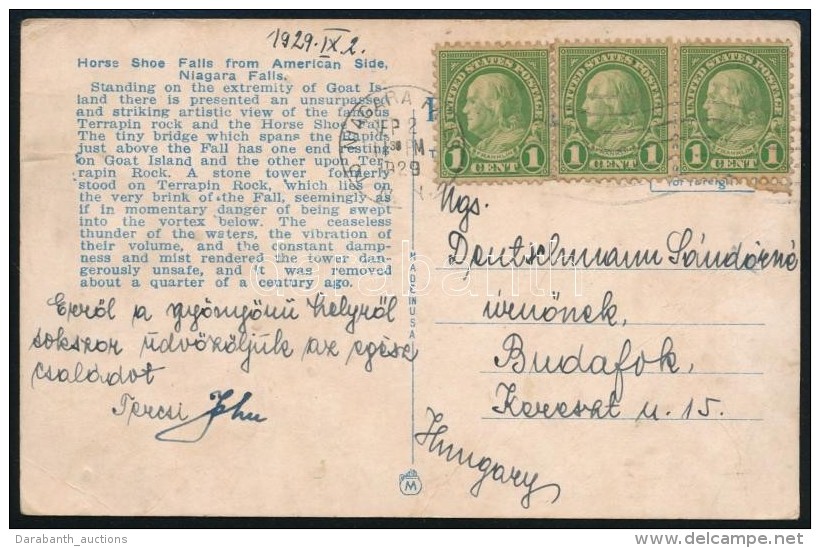 1929.IX.2.
Horse Shoe Falls from American Side,
Niagara Falls.
Standing on the extremity of Goat Is-
land there is presented an unsurpassed
and striking artistic view of the famous
Terrapin rock and the Horse Shoe Fall.
The tiny bridge which spans the Rapids
just above the Fall has one end resting
on Goat Island and the other upon Ter-
rapin Rock. A stone tower formerly
stood on Terrapin Rock, which lies on
the very brink of the Fall, seemingly as
if in momentary danger of being swept
into the vortex below. The ceaseless
thunder of the waters, the vibration of
their volume, and the constant damp-
ness and mist rendered the tower dan-
gerously unsafe, and it was removed
about a quarter of a century ago.
Erről a gyöngyörű helyről
sokszor üdvözöljük az egész
családot
Tercsi John
NIAGARA
SEP 2
PM
1929
UNITED STATES POSTAGE
FRANKLIN
1 CENT 1
UNITED STATES POSTAGE
FRANKLIN
1 CENT 1
UNITED STATES POSTAGE
FRANKLIN
1 CENT 1
MADE IN USA
M
Ngs.
Deutschmann Sándorné
úrnőnek,
Budafok,
Kereszt u. 15.
Hungary
darabanth
Darabanth_auctions
delcampe.net